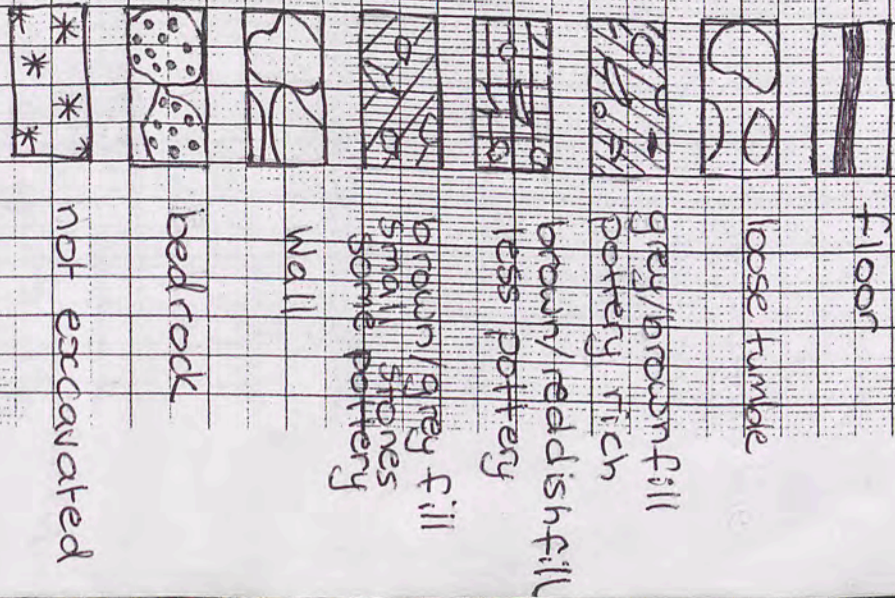 floor
loose tumble
grey/brown fill
pottery rich
brown/reddish fill
less pottery
brown/grey fill
small stones
some pottery
wall
bedrock
not excavated